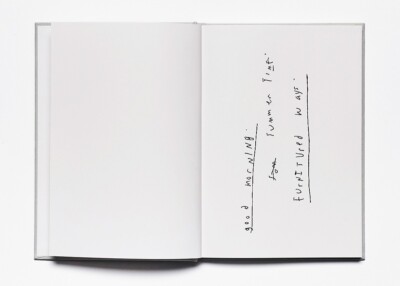 good morNING.
summer TIME.
furNITUred ways.